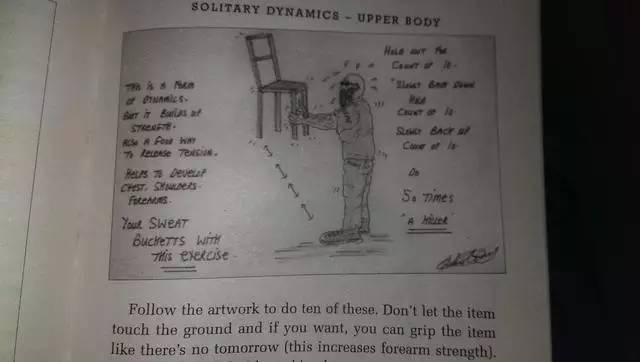 SOLITARY DYNAMICS – UPPER BODY
THIS IS A FORM
OF DYNAMICS.
BUT IT BUILDS UP
STRENGTH.
ALSO A GOOD WAY
TO RELEASE TENSION.
HELPS TO DEVELOP
CHEST, SHOULDERS.
FOREARMS.
YOUR SWEAT
BUCHETTS WITH
THIS EXERCISE.
HOLD OUT FOR
COUNT OF 10.
SLOWLY BACK DOWN
HOLD
COUNT OF 10.
SLOWLY BACK UP
COUNT OF 10.
DO
50 TIMES
"A KILLER"
Follow the artwork to do ten of these. Don't let the item
touch the ground and if you want, you can grip the item
like there's no tomorrow (this increases forearm strength).